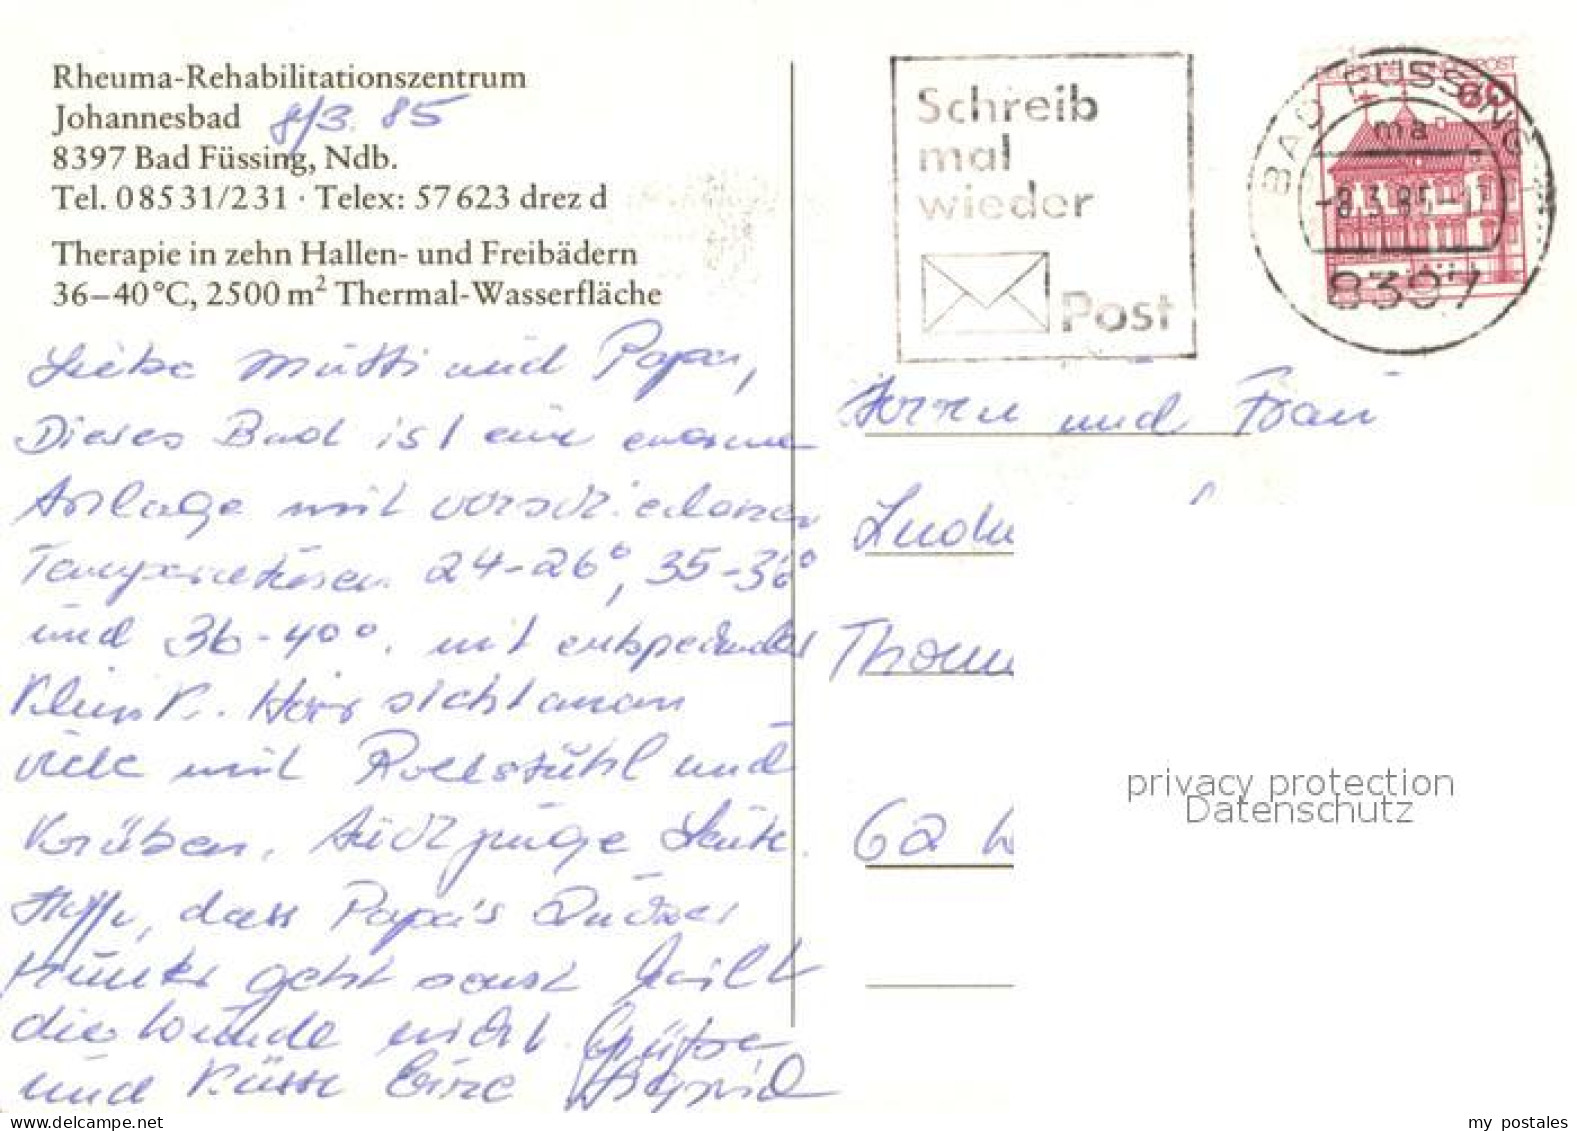 Rheuma-Rehabilitationszentrum
Johannesbad 8/3. 85
8397 Bad Füssing, Ndb.
Tel. 0 85 31/231 · Telex: 57 623 drez d
Therapie in zehn Hallen- und Freibädern
36–40 °C, 2500 m² Thermal-Wasserfläche
Liebe Mutti und Papa,
Dieses Bad ist eine enorme
Anlage mit verschiedenen
Temperaturen 24-26°, 35-36°
und 36-40°, mit entsprechender
Klinik. Hier sieht man
viele mit Rollstühl und
Krüken, auch junge Leute.
Hoffe, dass Papa's Zucker
runter geht sonst heilt
die Wunde nicht. Grüsse
und Küsse Eure
Schreib
mal
wieder
Post
DEUTSCHE BUNDESPOST
60
BAD FÜSSING
ma
-8.3.85-17
8397
Herrn und Frau
Ludw
Thom
62 W
privacy protection
Datenschutz
my postales